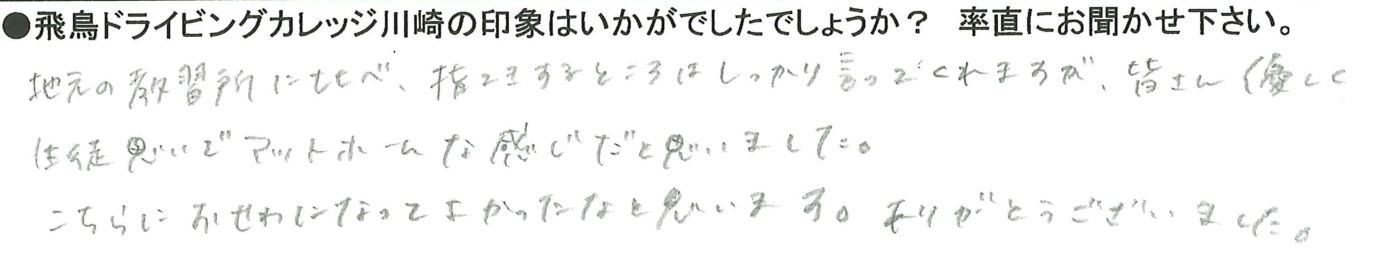 ●飛鳥ドライビングカレッジ川崎の印象はいかがでしたでしょうか？　率直にお聞かせ下さい。
地元の教習所に比べ、指てきするところはしっかり言ってくれますが、皆さん優しく
生徒思いでアットホームな感じだと思いました。
こちらにおせわになってよかったなと思います。ありがとうございました。